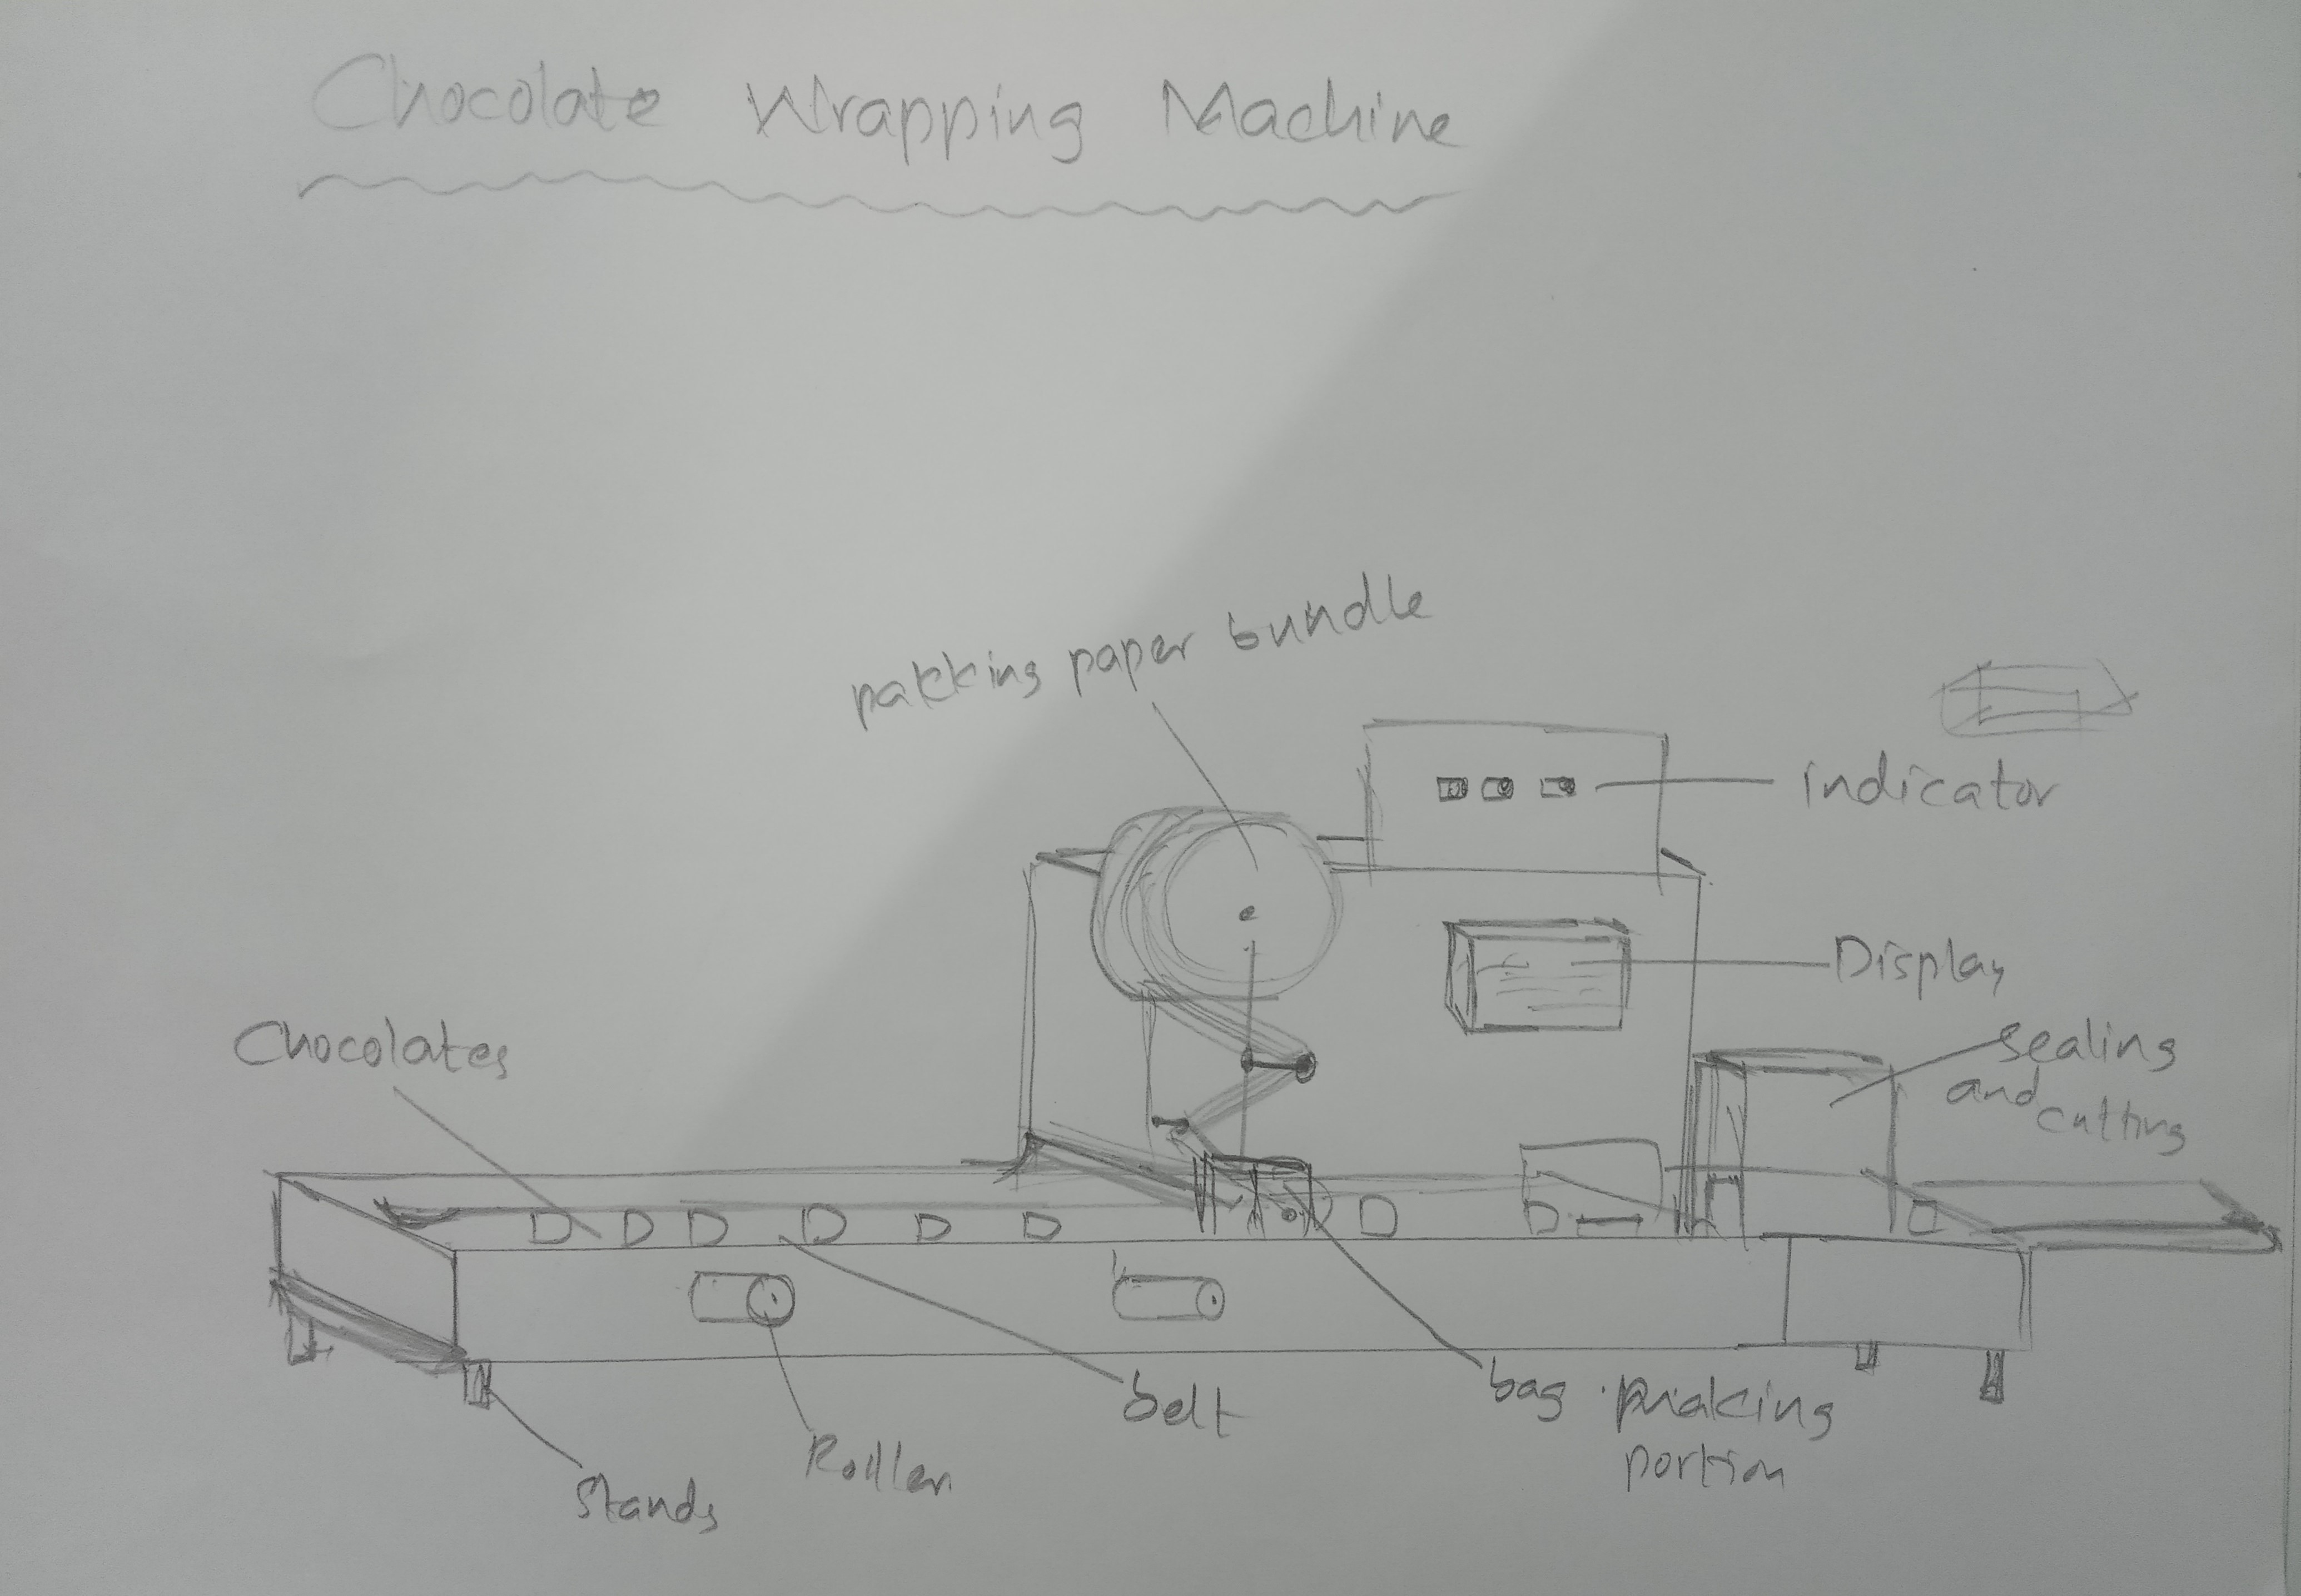 Chocolate Wrapping Machine
pakking paper bundle
indicator
Display
Chocolates
sealing
and cutting
belt
bag making
portion
Roller
Stands